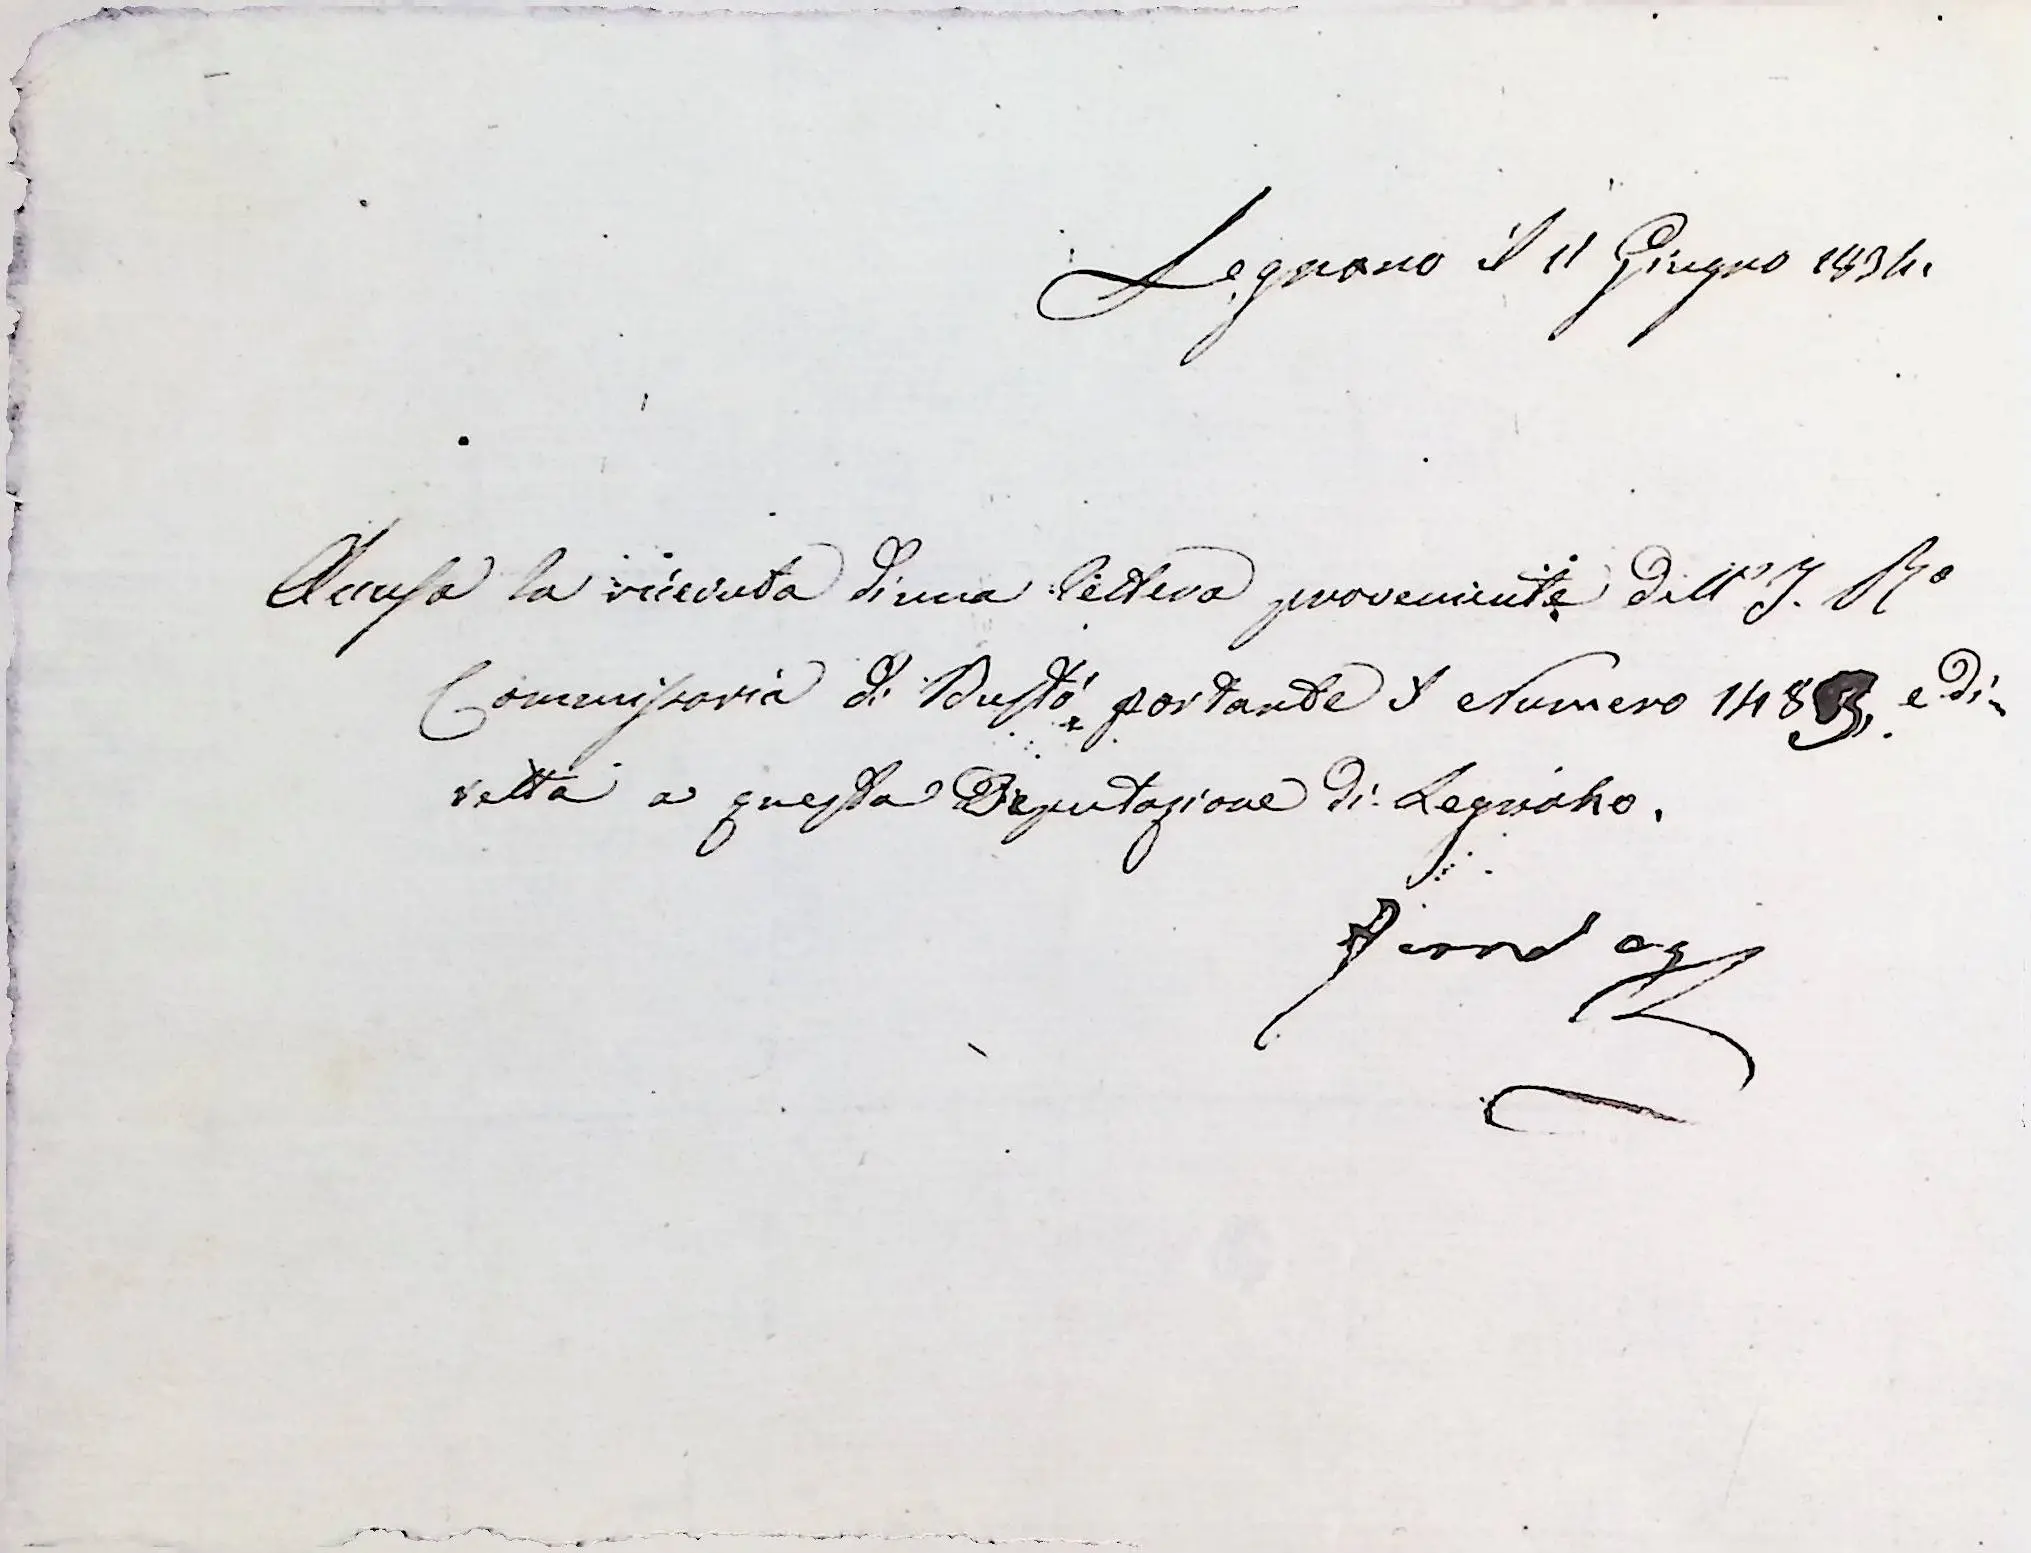 Legnano il 11 Giugno 1834.
Accusa la ricevuta di una lettera proveniente dell' I. Ro
Commissaria di Busto portante il Numero 1483, e di-
retta a questa Deputazione di Legnano.